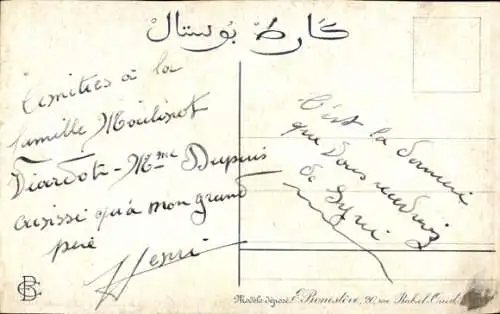 كارط بوسطال
amitiés à la
famille Moulinot
Diardot - Mme Dupuis
aussi qu'à mon grand
père
Henri
C'est la
que vous
de
Modèle déposé. E. Bonestève, 20, rue Babel-Oued